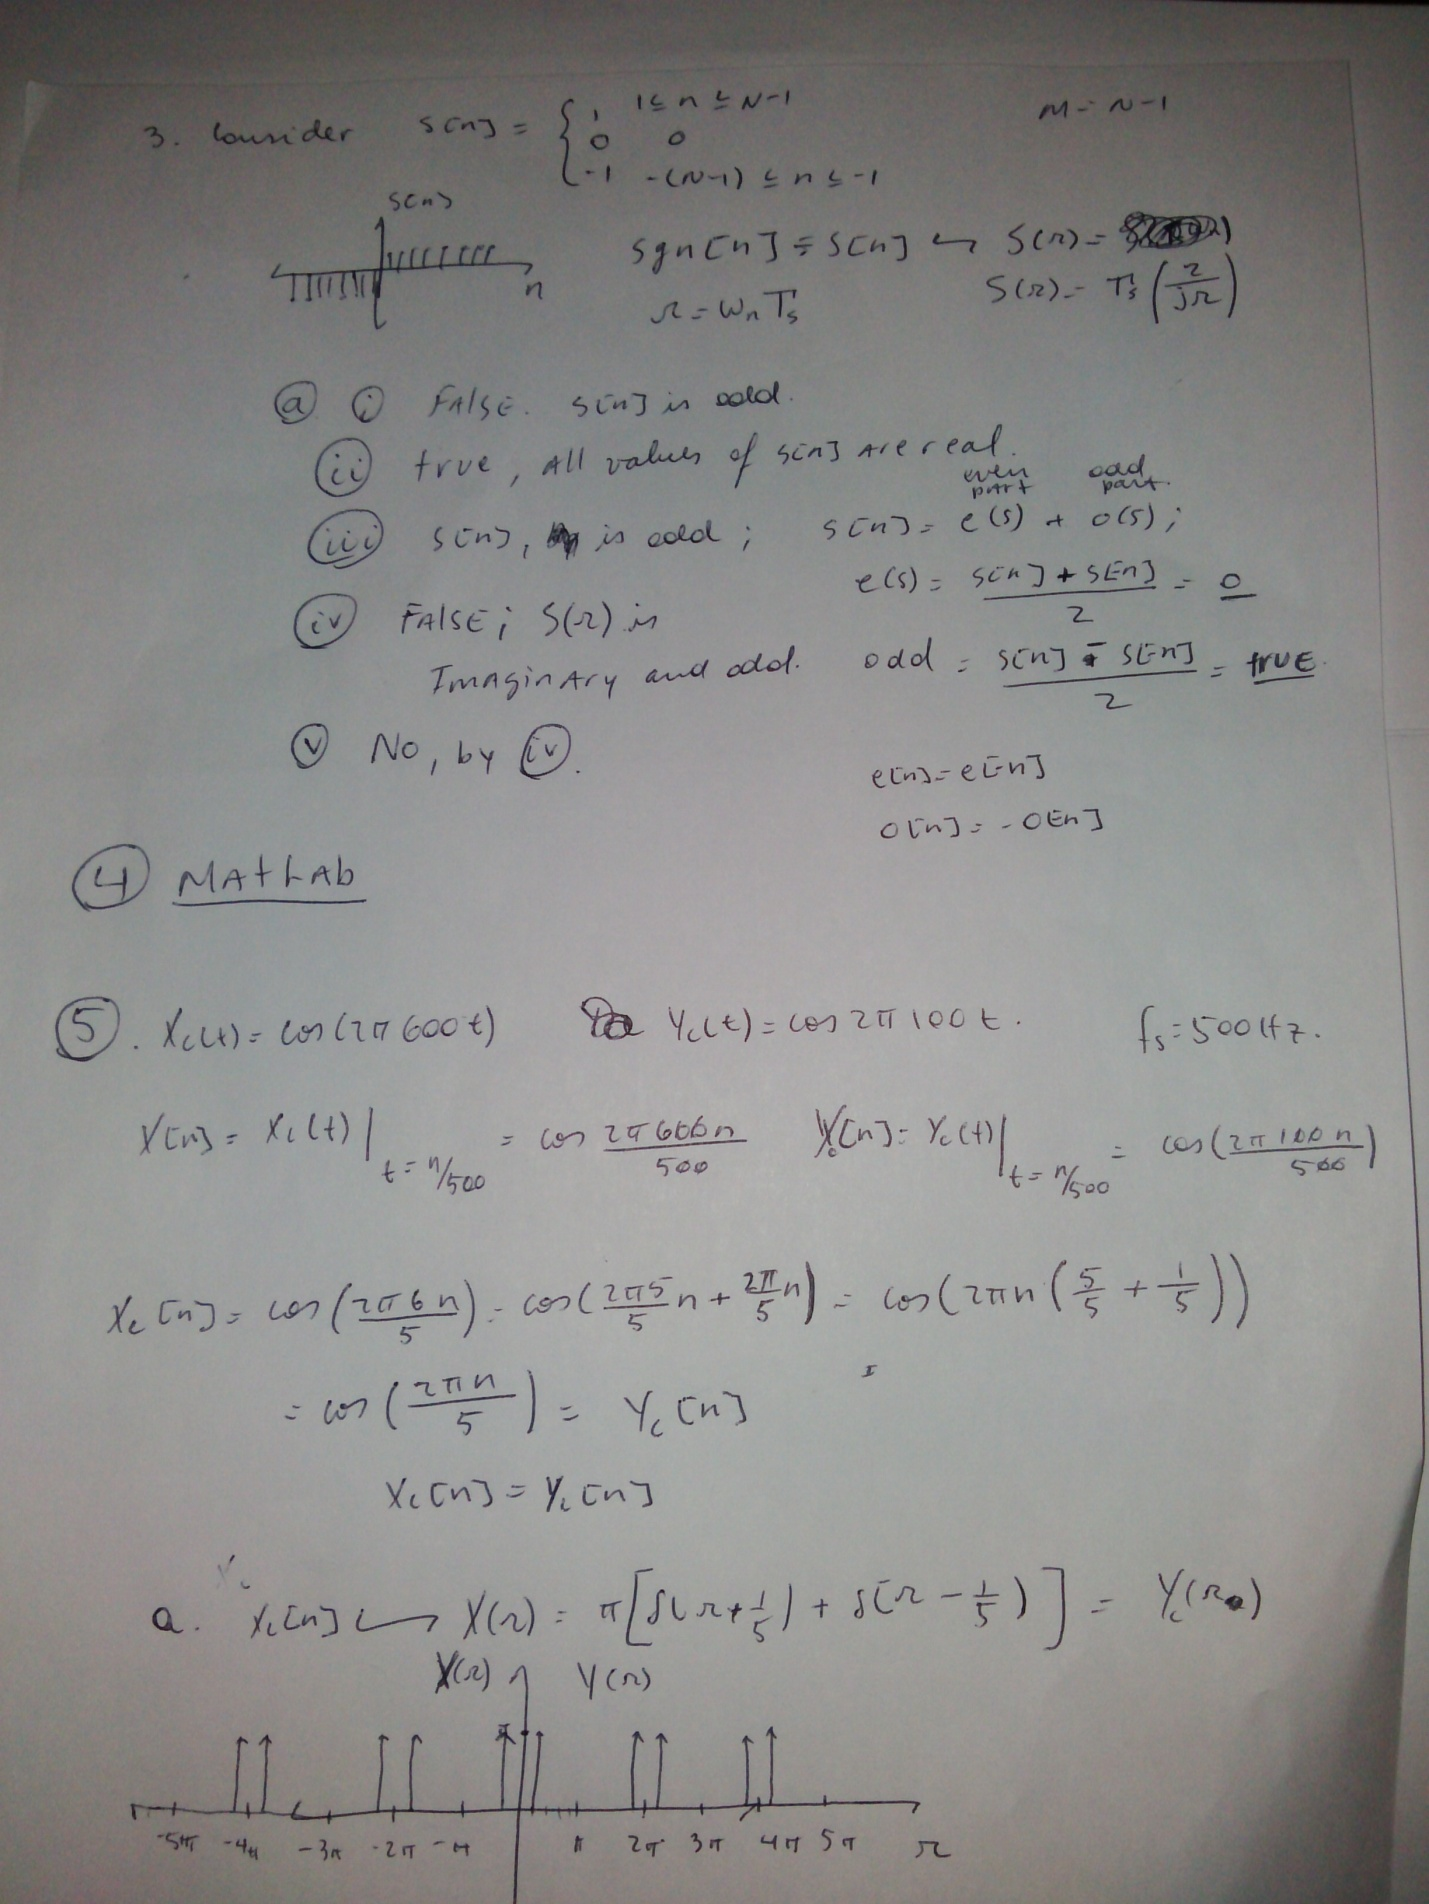 3. Consider s[n] = { 1 1 ≤ n ≤ N-1 M = N-1
0 0
-1 -(N-1) ≤ n ≤ -1
s[n]
n
sgn[n] = s[n] ↪ S(Ω) =
Ω = ωn Ts S(Ω) = Ts (2/jΩ)
a i FALSE. s[n] is odd.
ii true, All values of s[n] Are real.
even part odd part.
iii s[n], is odd; s[n] = e(s) + o(s);
e(s) = (s[n] + s[-n])/2 = 0
iv FALSE; S(Ω) is
Imaginary and odd. odd = (s[n] - s[-n])/2 = true.
v No, by iv.
e[n] = e[-n]
o[n] = -o[-n]
4 MAtLAb
5. Xc(t) = cos(2π600t) Yc(t) = cos 2π100t. fs = 500Hz.
X[n] = Xc(t)| t = n/500 = cos 2π600n/500 Y[n] = Yc(t)| t = n/500 = cos(2π100n/500)
Xc[n] = cos(2π6n/5) = cos(2π5/5 n + 2π/5 n) = cos(2πn(5/5 + 1/5))
= cos(2πn/5) = Yc[n]
Xc[n] = Yc[n]
a. Xc[n] ↪ X(Ω) = π[δ(Ω + 1/5) + δ(Ω - 1/5)] = Yc(Ω)
X(Ω) Y(Ω)
π
-5π -4π -3π -2π -π π 2π 3π 4π 5π Ω